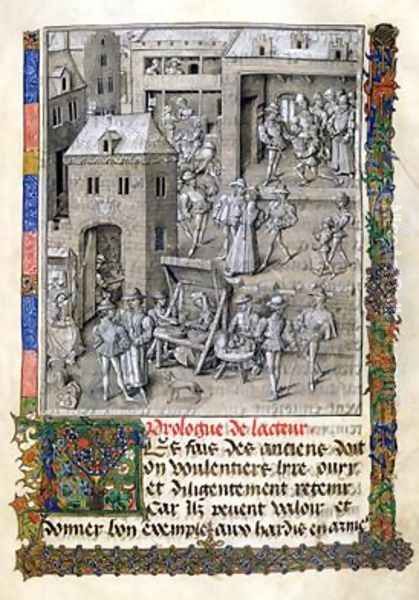 Prologue de lacteur
Les fais des anciens doit
on voulentiers lyre ouyr
et diligentement retenir
Car Ilz pevent valoir et
donner bon exemple aux hardis en arme